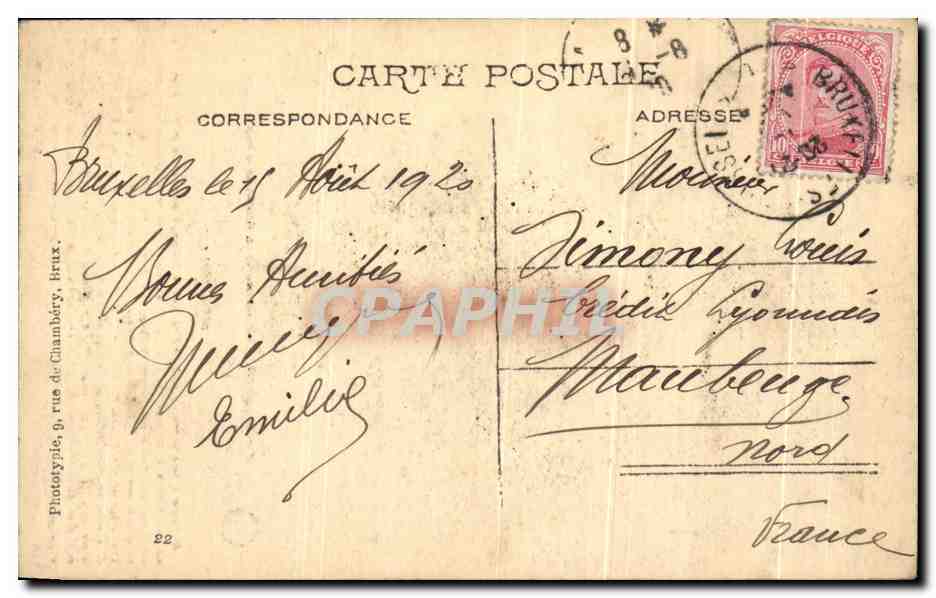 CARTE POSTALE
CORRESPONDANCE
ADRESSE
BELGIQUE
10
BELGIË
Bruxelles le 15 Août 1920
Bonnes Amitiés
Emilie
Monsieur
Simony Louis
Crédit Lyonnais
Maubeuge
Nord
France
Phototypie, 9, rue de Chambéry, Brux.
22
CPAPHIL